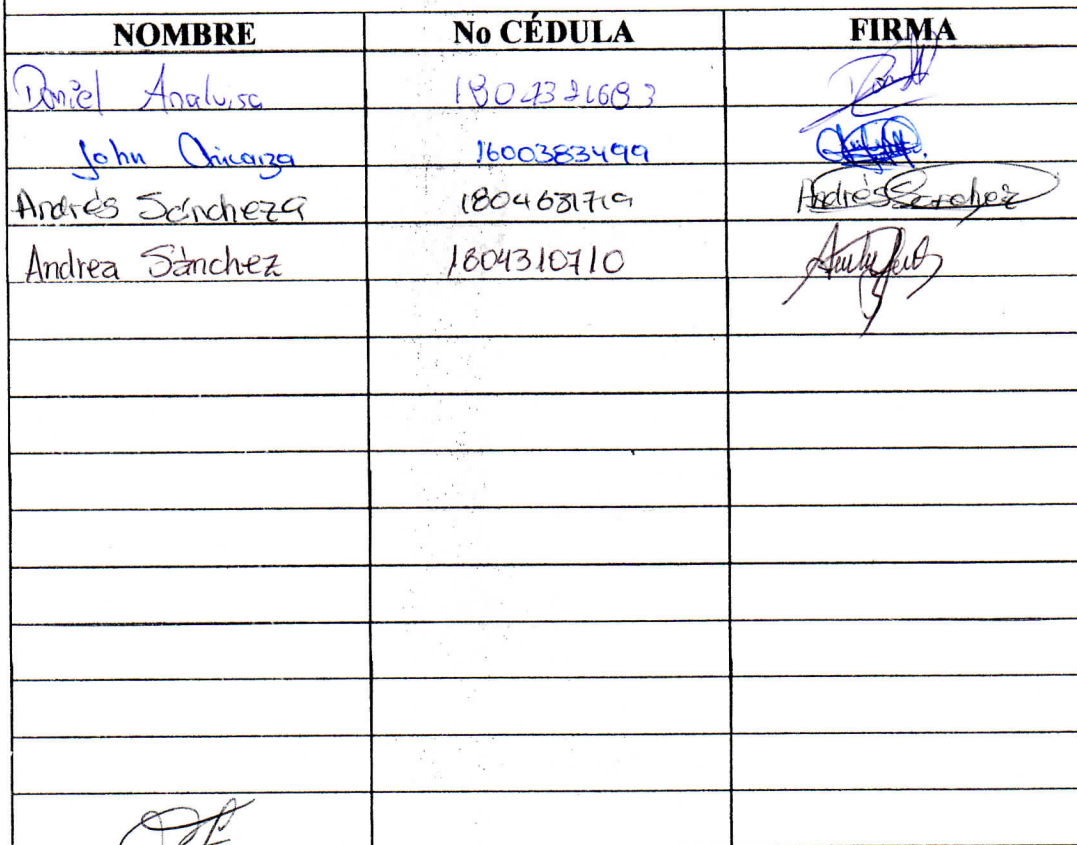 NOMBRE No CÉDULA FIRMA
Daniel Analuisa
John Chicaiza 1600383499
Andrés Sánchez 1804631719 Andrés Sanchez
Andrea Sánchez 1804310710